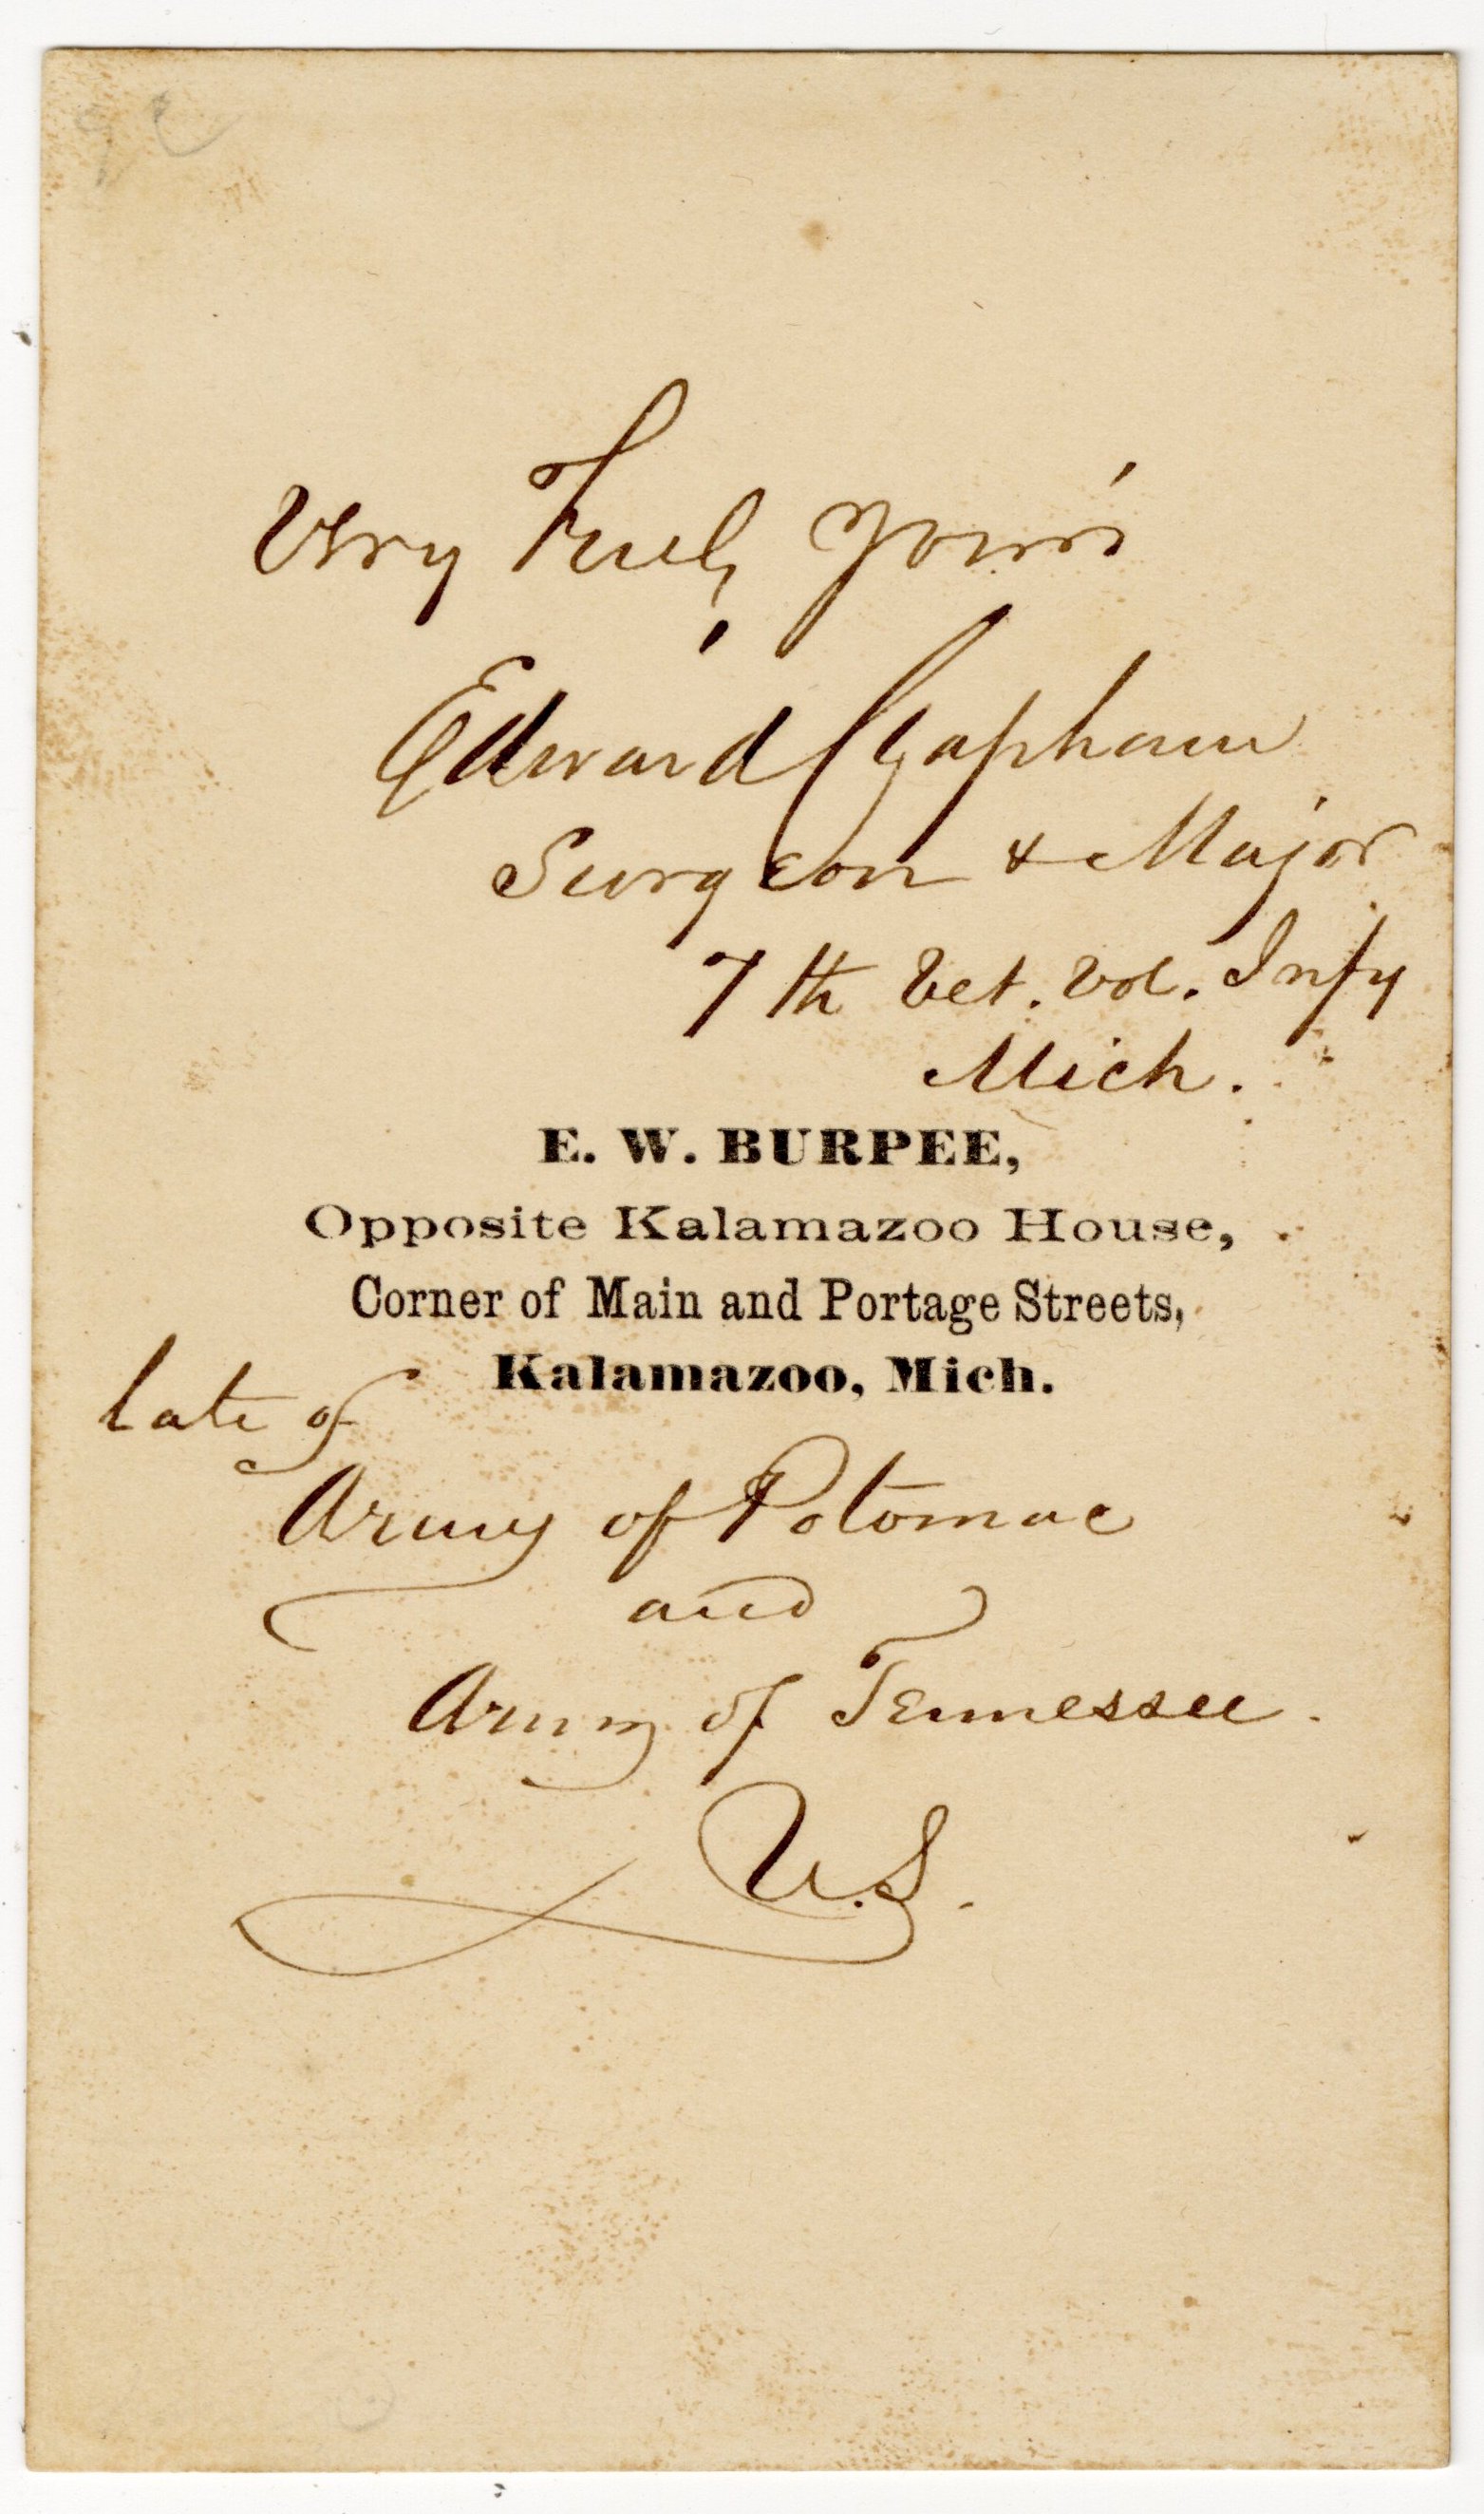 Very Truly Yours
Edward Lapham
Surgeon & Major
7th Vet. Vol. Infy
Mich.
E. W. BURPEE,
Opposite Kalamazoo House,
Corner of Main and Portage Streets,
Kalamazoo, Mich.
late of
Army of Potomac
and
Army of Tennessee.
U.S.